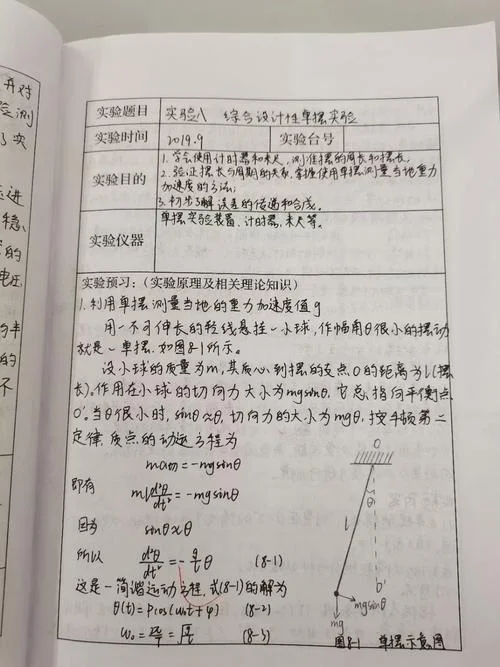 并对
验测
了实
实验题目 实验八 综合设计性单摆实验
实验时间 2019.9 实验台号
实验目的 1.学会使用计时器和米尺,测准摆的周长和摆长。
2.验证摆长与周期的关系,掌握使用单摆测量当地重力
加速度的方法;
3.初步了解误差的传递和合成。
实验仪器 单摆实验装置、计时器、米尺等。
实验预习:(实验原理及相关理论知识)
1.利用单摆测量当地的重力加速度值g
用一不可伸长的轻线悬挂一小球,作幅角θ很小的摆动
就是一单摆.如图8-1所示。
设小球的质量为m,其质心到摆的支点O的距离为l(摆
长)。作用在小球的切向力大小为mgsinθ,它总指向平衡点
O'。当θ很小时,sinθ≈θ,切向力的大小为mgθ,按牛顿第二
定律,质点的动运方程为
ma切=-mgsinθ
即有 ml d²θ/dt² = -mgsinθ
因为 sinθ≈θ
所以 d²θ/dt² = -g/l θ (8-1)
这是一简谐运动方程,式(8-1)的解为
θ(t)=Pcos(ω₀t+φ) (8-2)
ω₀=2π/T=√g/l (8-3)
O
θ
l
O'
mgsinθ
mg
图8-1 单摆示意图